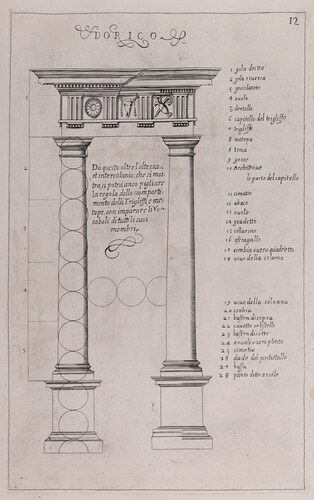 12
DORICO
1 gola dritta
2 gola riuersa
3 gocciolatoio
4 uuolo
5 dentello
6 capitello del trigliffo
7 trigliffo
8 metopa
9 gocce
10 Architraue
le parte del capitello
11 cimatio
12 abaco
13 uuolo
14 gradetti
15 collarino
16 astragallo
17 cimbia ouero quadretto
18 uiuo della colonna
Da questo oltre l'altezza,
et intercolunio, che si mos-
tra, si potrà anco pigliare
la regola dello compartì-
mento delli Triglifi, e me-
tope, con imparare li Vo-
caboli di tutti li suoi
membri.
1
2
3
4
5
19 uiuo della colonna
20 cimbia
21 baston di sopra
22 cauetto
23 baston di sotto
25 cimatio
26 dado del piedistallo
27 bassa
28 plinto detto zocolo